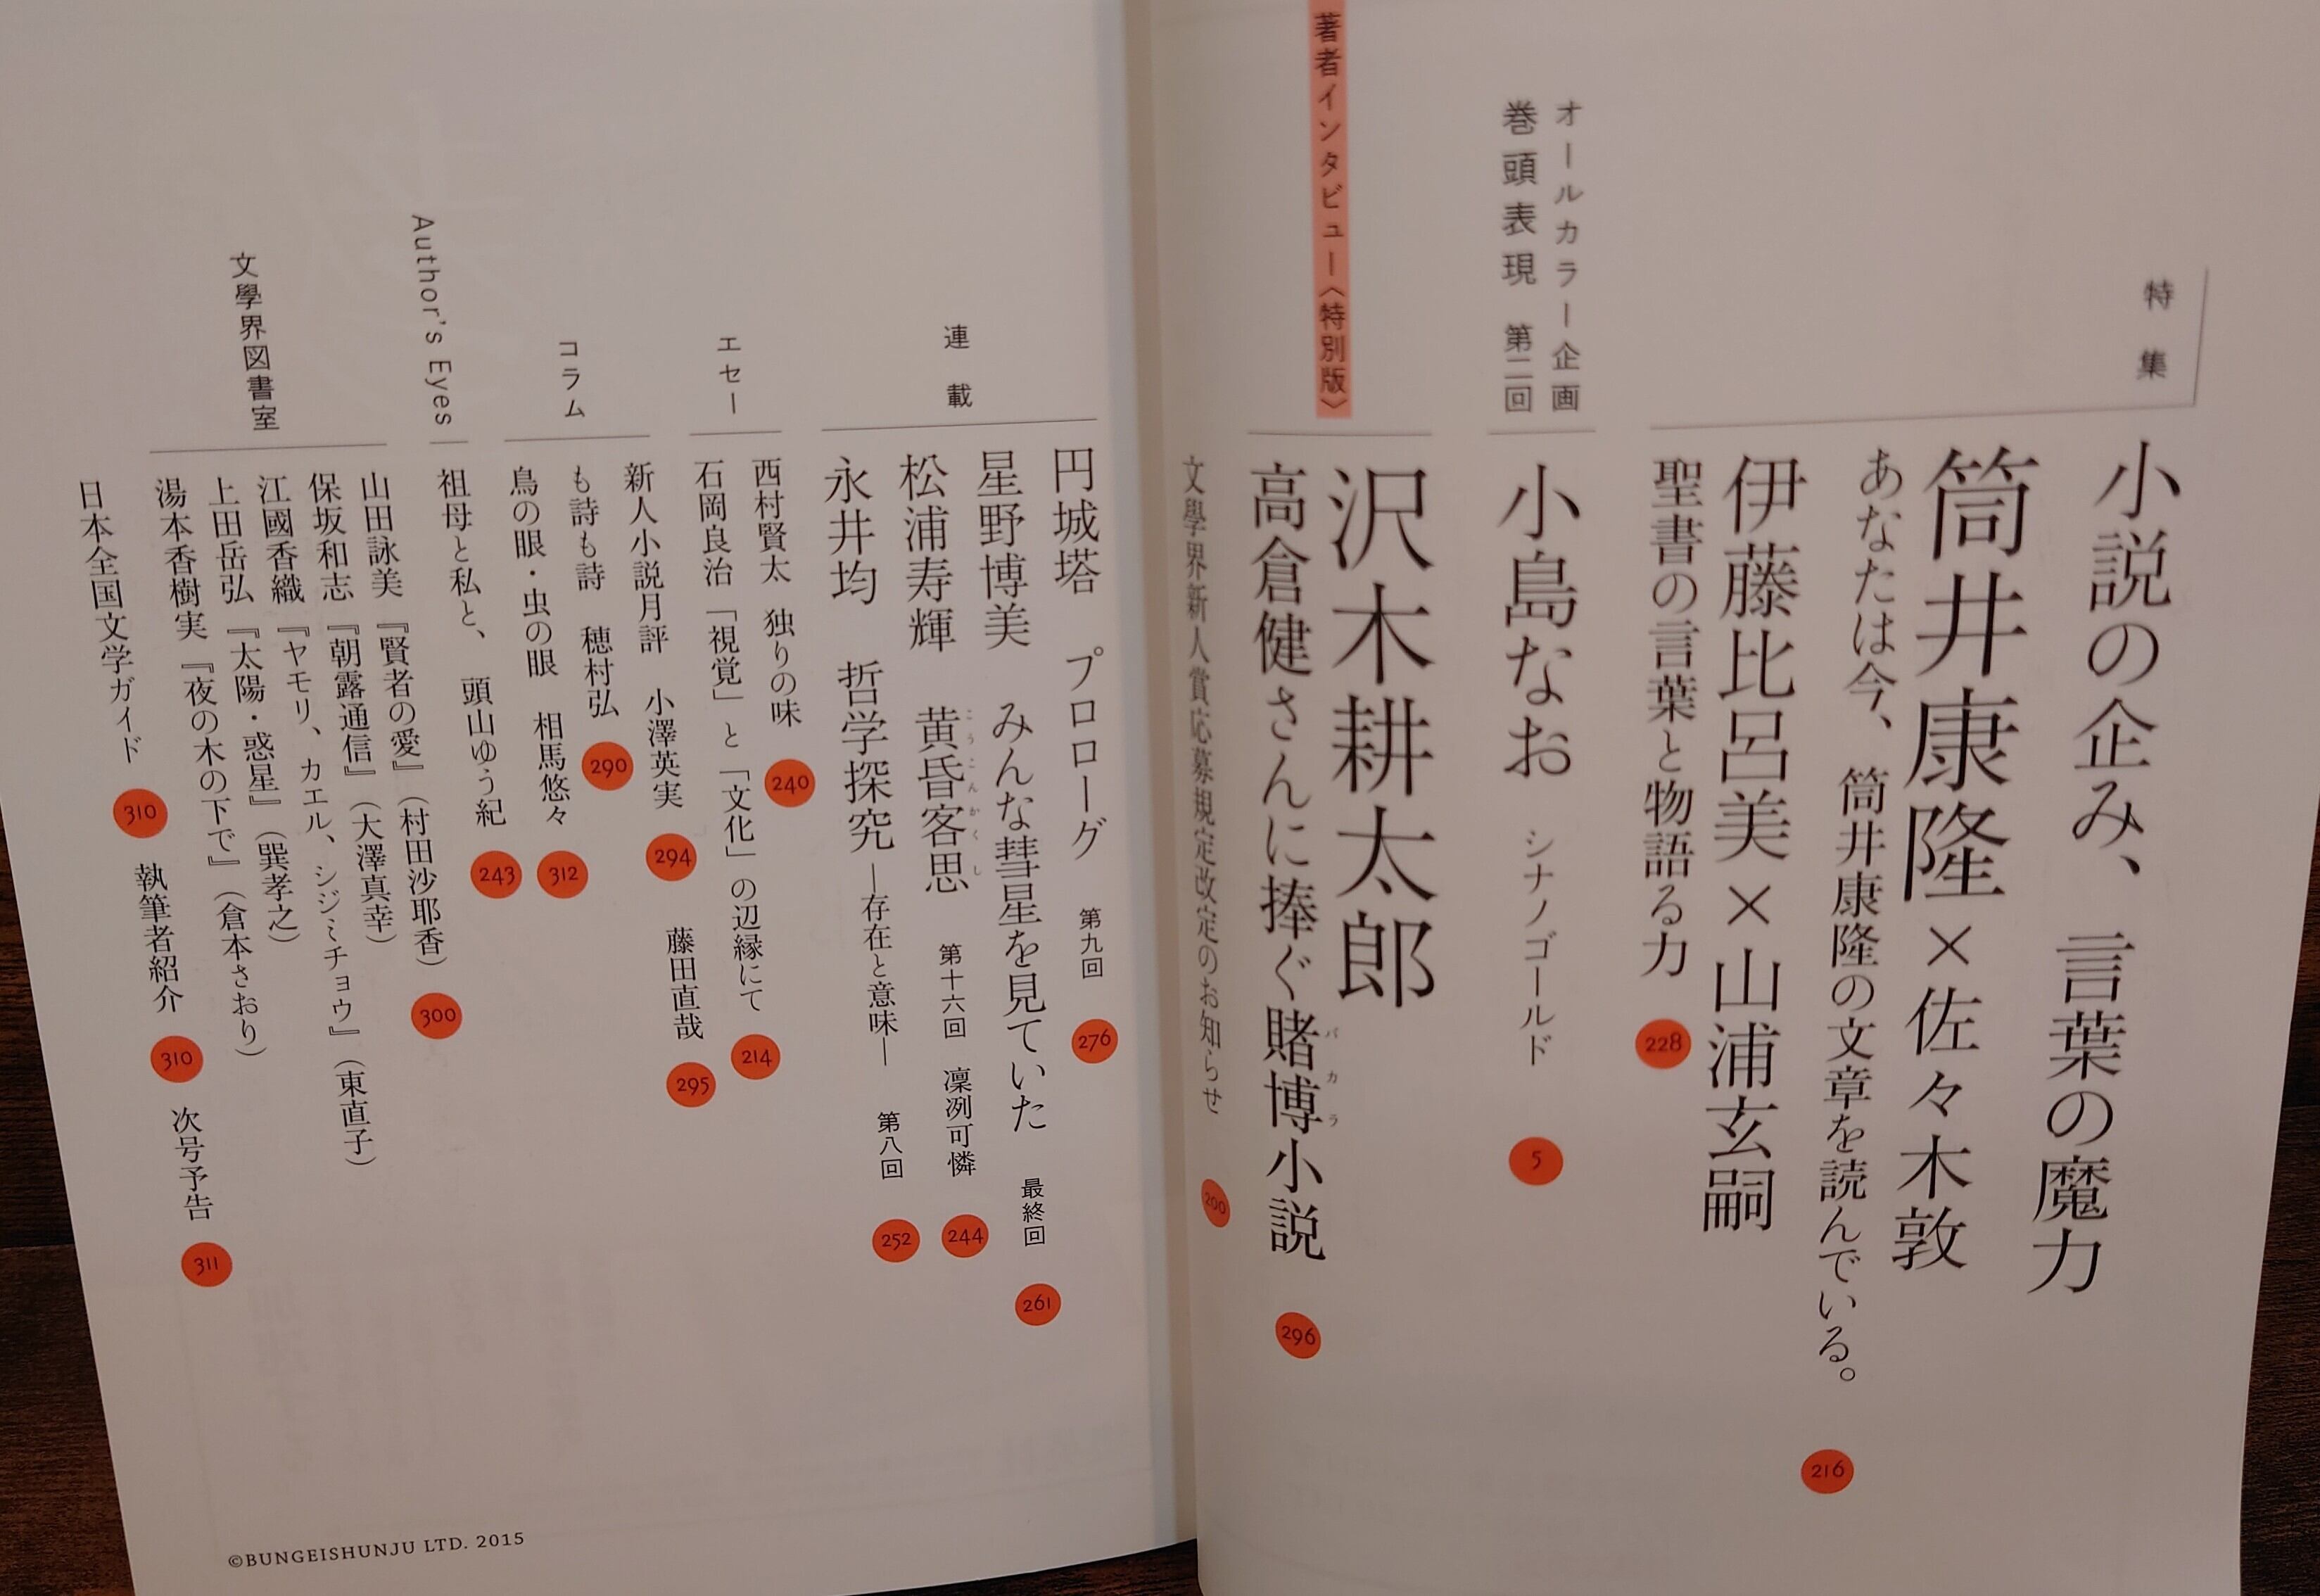 特集
小説の企み、言葉の魔力
筒井康隆×佐々木敦
あなたは今、筒井康隆の文章を読んでいる。 216
伊藤比呂美×山浦玄嗣
聖書の言葉と物語る力 228
オールカラー企画
巻頭表現 第二回
小島なお シナノゴールド 5
著者インタビュー〈特別版〉
沢木耕太郎
高倉健さんに捧ぐ賭博小説 296
バカラ
文學界新人賞応募規定改定のお知らせ 200
連載
円城塔 プロローグ 第九回 276
星野博美 みんな彗星を見ていた 最終回 261
松浦寿輝 黄昏客思 第十六回 凜冽可憐 244
こうこんかくし
永井均 哲学探究 ―存在と意味― 第八回 252
エセー
西村賢太 独りの味 240
石岡良治 「視覚」と「文化」の辺縁にて 214
コラム
新人小説月評 小澤英実 294 藤田直哉 295
も詩も詩 穂村弘 290
鳥の眼・虫の眼 相馬悠々 312
Author's Eyes
祖母と私と、 頭山ゆう紀 243
文學界図書室
山田詠美『賢者の愛』（村田沙耶香） 300
保坂和志『朝露通信』（大澤真幸）
江國香織『ヤモリ、カエル、シジミチョウ』（東直子）
上田岳弘『太陽・惑星』（巽孝之）
湯本香樹実『夜の木の下で』（倉本さおり）
日本全国文学ガイド 310 執筆者紹介 310 次号予告 311
©BUNGEISHUNJU LTD. 2015